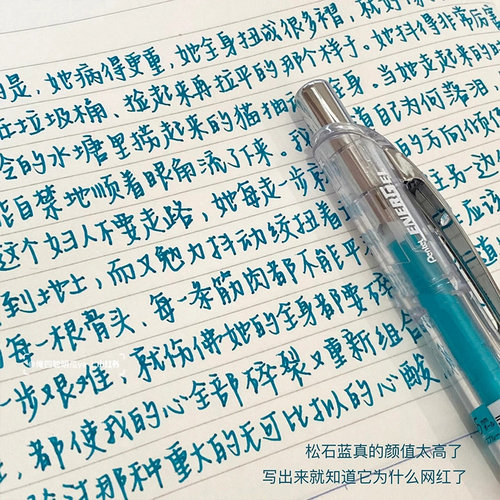 的是，她病得更重，她全身扭成很多褶，就好
在垃圾桶、捡起来再拉平的那个样子。她抖得非常厉害
冷的水塘里捞起来的猫抽 全身。当她走起来的
能自禁地顺着眼角流了下来。我 道自己为何落泪
这个妇人不要走路，她每走一步 的方向倾
到地上，而又勉力抖动绞扭着 另一边
每一根骨头、每一条筋肉都不能平 应该
一步艰难，就仿佛她的全身都要碎
都使我的心全部碎裂又重新组合
那种重大的无可比拟的心酸
Pentel ENERGEL
松石蓝真的颜值太高了
写出来就知道它为什么网红了